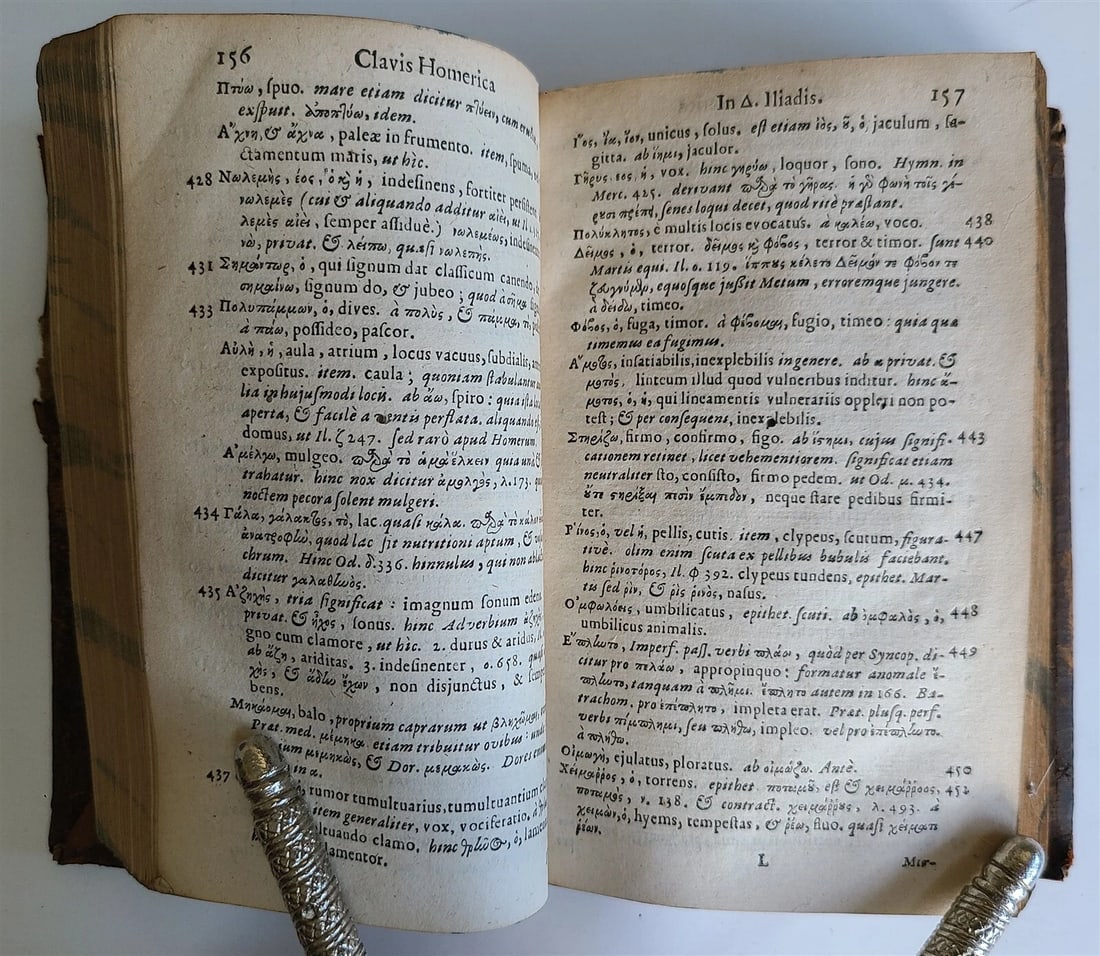 156 Clavis Homerica
Πτύω, ſpuo. mare etiam dicitur πτύειν, cum
exſpuit. ἀποπτύω, idem.
Α῎χνη, & ἄχνα, paleæ in frumento. item, ſpuma,
ctamentum maris, ut hìc.
428 Νωλεμὴς, έος, ὁ κ ἡ, indeſinens, fortiter
νωλεμὲς (cui & aliquando additur αἰὲς, ut
λεμὲς αἰὲς, ſemper aſſiduè.) νωλεμέως,
νὼ, privat. & λείπω, quaſi νωλεπής.
431 Σημάντωρ, ὁ, qui ſignum dat claſſicum canendo,
σημαίνω, ſignum do, & jubeo; quod à σῆμα
433 Πολυπάμμων, ὁ, dives. à πολὺς, & πάμμα, τὸ,
à πάω, poſſideo, paſcor.
Αὐλὴ, ἡ, aula, atrium, locus vacuus, ſubdialis,
expoſitus. item. caula; quoniam ſtabulantur
lia in hujuſmodi locis. ab ἄω, ſpiro: quia
aperta, & facilè a ventis perflata. aliquando
domus, ut Il. ζ 247. ſed rarò apud Homerum.
Α᾿μέλγω, mulgeo. παρὰ τὸ ἅμα ἕλκειν quia
trahatur. hinc nox dicitur ἀμολγὸς, λ. 173.
noctem pecora ſolent mulgeri.
434 Γάλα, γάλακτος, τὸ, lac. quaſi κάλα. παρὰ τὸ
quod lac ſit nutritioni aptum, &
chrum. Hinc Od. δ. 336. hinnulus, qui non
dicitur γαλαθηνός.
435 Α᾿ζηχὴς, tria ſignificat: imagnum ſonum
privat. & ἦχος, ſonus. hinc Adverbium
gno cum clamore, ut hìc. 2. durus & aridus,
ab ἄζη, ariditas. 3. indeſinenter, ο. 658.
χὴς, & ἄδην ἔχων, non disjunctus, &
bens.
Μηκάομαι, balo, proprium caprarum ut βληχῶμαι,
Præt. med. μέμηκα. etiam tribuitur ovibus:
μεμηκὼς, & Dor. μεμακώς. Dores
437 in α.
rumor tumultuarius, tumultuantium
item generaliter, vox, vociferatio.
clamo. hinc
lamentor.
In Δ. Iliadis. 157
Ι῎ος, ἴα, ἴον, unicus, ſolus. eſt etiam ἰὸς, ῦ, ὁ, jaculum, ſa-
gitta. ab ἵημι, jaculor.
Γῆρυς, εος, ἡ, vox. hinc γηρύω, loquor, ſono. Hymn. in
Merc. 425. derivant παρὰ τὸ γῆρας. ἡ γὸ φωνὴ τοῖς γέ-
ρουσι πρέπει, ſenes loqui decet, quod ritè præſtant.
Πολύκλητος, è multis locis evocatus. à καλέω, voco. 438
Δεῖμος, ὁ, terror. δεῖμος κ φόβος, terror & timor. ſunt 440
Martis equi. Il. ο. 119. ἵππους κέλετο Δεῖμόν τε Φόβον τε
ζευγνύμεν, equoſque juſſit Metum, erroremque jungere.
à δείδω, timeo.
Φόβος, ὁ, fuga, timor. à φέβομαι, fugio, timeo: quia quæ
timemus ea fugimus.
Α῎μοτος, inſatiabilis, inexplebilis ingenere. ab α privat. &
μοτὸς. linteum illud quod vulneribus inditur. hinc ἄ-
μοτος, ὁ, ἡ, qui lineamentis vulnerariis oppleri non po-
teſt; & per conſequens, inexplebilis.
Στηρίζω, firmo, confirmo, figo. ab ἵστημι, cujus ſignifi- 443
cationem retinet, licet vehementiorem. ſignificat etiam
neutraliter ſto, conſiſto, firmo pedem. ut Od. μ. 434.
ὔτε στηρίξαι ποσὶν ἔμπεδον, neque ſtare pedibus firmi-
ter.
Ρ῾ινὸς, ὁ, vel ἡ, pellis, cutis. item, clypeus, ſcutum, figura- 447
tivè. olim enim ſcuta ex pellibus bubulis faciebant.
hinc ῥινοτόρος, Il. φ 392. clypeus tundens, epithet. Mar-
tis ſed ῥὶν, & ῥὶς ῥινὸς, naſus.
Ο᾿μφαλόεις, umbilicatus, epithet. ſcuti. ab ὀμφαλὸς, ὁ, 448
umbilicus animalis.
Ε῎πλωτο, Imperf. paſſ. verbi πλάω, quòd per Syncop. di- 449
citur pro πελάω, appropinquo: formatur anomale ἔ-
πλωτο, tanquam à πλῆμι. ἔπλητο autem in 166. Ba-
trachom. pro ἐπέπλητο, impleta erat. Præt. pluſq. perf.
verbi πίμπλημι, ſeu πλήθω, impleo. vel pro ἐπέπλωτο.
à πλήθω.
Οἰμωγὴ, ejulatus, ploratus. ab οἰμώζω. Antè. 450
Χείμαρρος, ὁ, torrens. epithet. ποταμοῦ, eſt & χειμάρροος, 452
ποταμὸς, ν. 138. & contract. χειμάρρους, λ. 493. à
χειμὼν, ὁ, hyems, tempeſtas, & ῥέω, fluo. quaſi χείματι
ῥέων.
L Μισ-